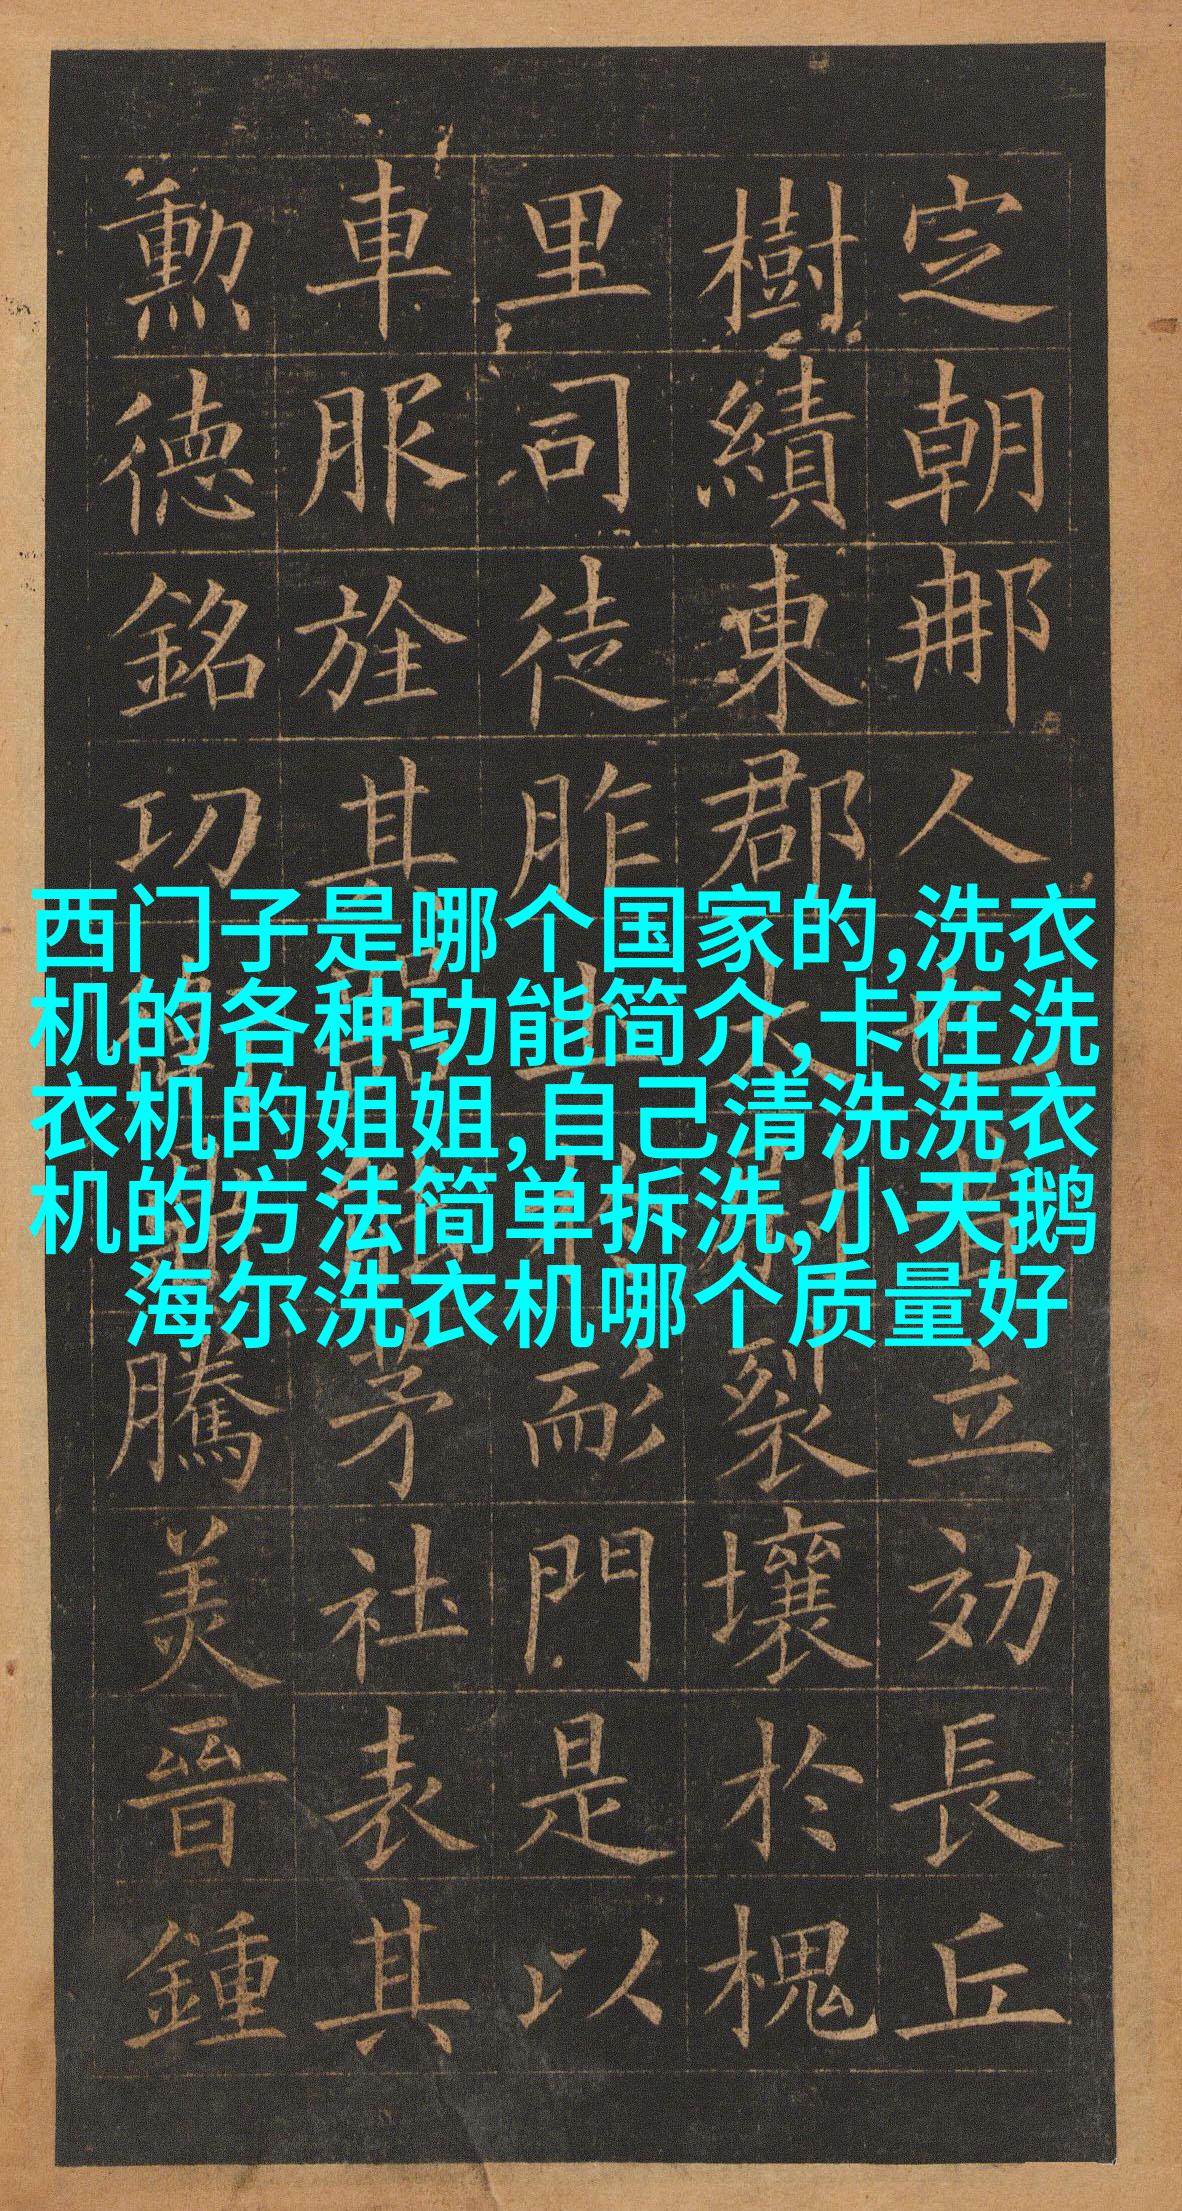 定朝那人也昔立効長丘
樹績東郡太尉裂壤於槐
里司徒胙土於耏門是以
車服旌其器能茅社表其
勲德銘功衛鼎騰美晉鍾
西门子是哪个国家的,洗衣
机的各种功能简介,卡在洗
衣机的姐姐,自己清洗洗衣
机的方法简单拆洗,小天鹅
海尔洗衣机哪个质量好